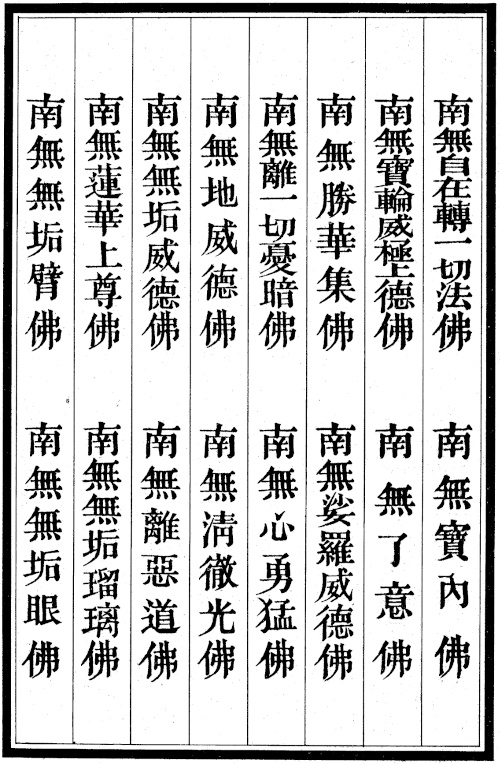 南無自在轉一切法佛
南無寶內佛
南無寶輪威極上德佛
南無了意佛
南無勝華集佛
南無娑羅威德佛
南無離一切憂暗佛
南無心勇猛佛
南無地威德佛
南無清徹光佛
南無無垢威德佛
南無離惡道佛
南無蓮華上尊佛
南無無垢瑠璃佛
南無無垢臂佛
南無無垢眼佛